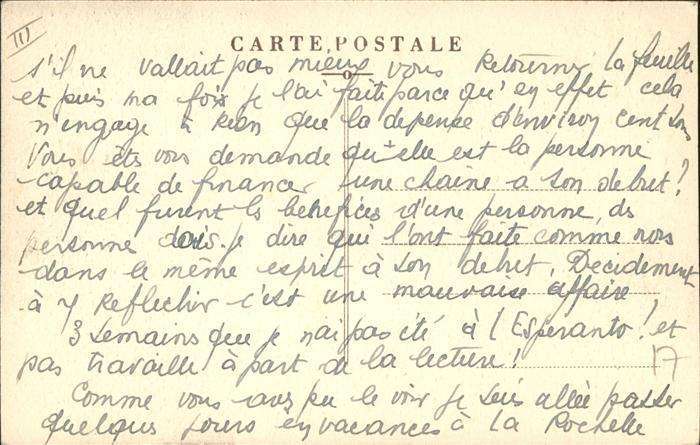 III
CARTE POSTALE
s'il ne vallait pas mieux vous retourner la feuille
et puis ma foi je l'ai faite parce qu'en effet cela
n'engage à rien que la depense d'environ cent sous
Vous êts vous demande qu'elle est la personne
capable de financer une chaine a son debut?
et quel furent ls benefices d'une personne, ds
personne dois je dire qui l'ont faite comme nous
dans le même esprit à son debut. Decidement
à y reflechir c'est une mauvaise affaire
3 semaines que je n'ai pas été à l'Esperanto! et
pas travaille à part de la lecture!
17
Comme vous avez pu le voir je suis allée passer
quelques jours en vacances à la Rochelle